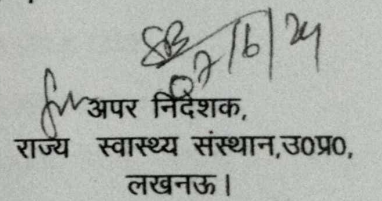 07/6/24
अपर निदेशक,
राज्य स्वास्थ्य संस्थान,उ0प्र0,
लखनऊ।